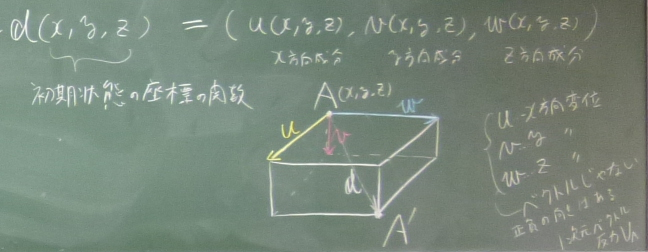 d(x, y, z) = (u(x, y, z), v(x, y, z), w(x, y, z))
x方向成分 y方向成分 z方向成分
初期状態の座標の関数
A(x,y,z)
w
u
v
d
A'
u‥x方向変位
v‥y 〃
w‥z 〃
ベクトルじゃない
正負の向きはある
1次元ベクトル